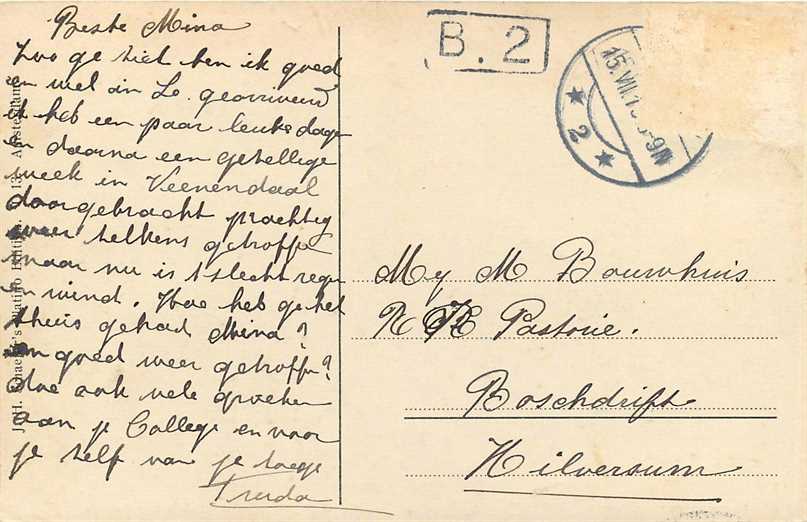 Beste Mina
Zoo ge ziet ben ik goed
en wel in Le. gearriveerd
ik heb een paar leuke dage
en daarna een gezellige
week in Veenendaal
doorgebracht prachtig
weer telkens getroffe
maar nu is t slecht rege
en wind. Hoe heb ge het
thuis gehad Mina?
en goed weer getroffe?
doe ook vele groeten
aan je College en voor
je zelf van je toege
Truida
B. 2
15.VII.1 8-9N
2
Mej M Bouwhuis
R K Pastorie.
Boschdrift
Hilversum
Amsterdam